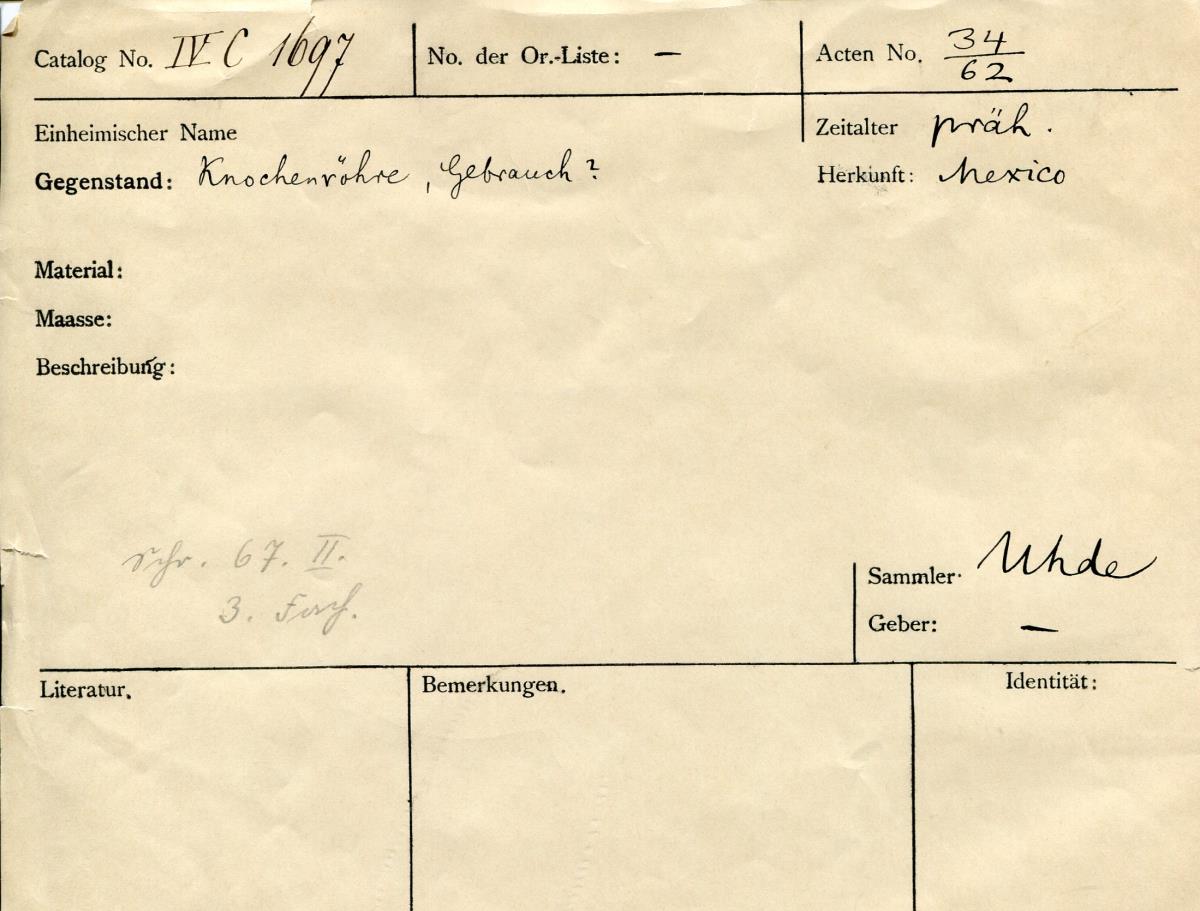 Catalog No. IV C 1697 No. der Or.-Liste: — Acten No. 34/62
Einheimischer Name Zeitalter präh.
Gegenstand: Knochenröhre, Gebrauch? Herkunft: Mexico
Material:
Maasse:
Beschreibung:
Schr. 67. II.
3. Fach.
Sammler. Uhde
Geber: —
Literatur. Bemerkungen. Identität: